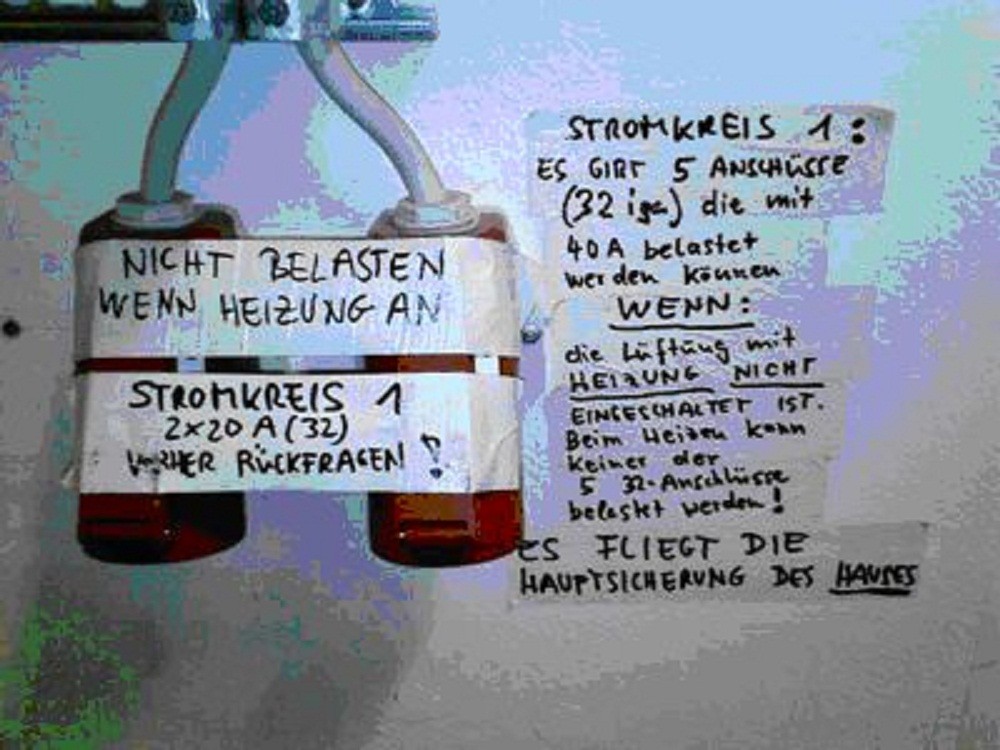 NICHT BELASTEN
WENN HEIZUNG AN
STROMKREIS 1
2x20 A (32)
VORHER RÜCKFRAGEN!
STROMKREIS 1:
ES GIBT 5 ANSCHÜSSE
(32 iga) die mit
40 A belastet
werden können
WENN:
die Lüftung mit
HEIZUNG NICHT
EINGESCHALTET IST.
Beim Heizen kann
keiner der
5 32-Anschlüsse
belastet werden!
ES FLIEGT DIE
HAUPTSICHERUNG DES HAUSES